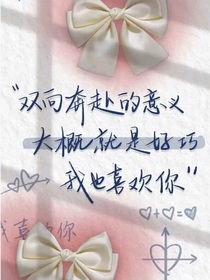 “双向奔赴的意义
大概就是好巧
我也喜欢你”
我喜欢你
♡+♡=♡